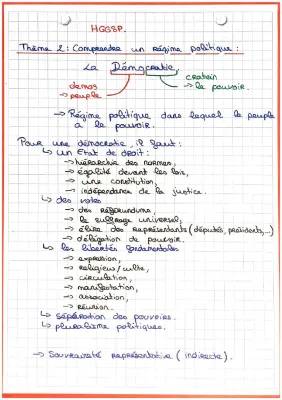 HGGSP.
Thème 2 : Comprendre un régime politique :
La Démocratie,
demos cratein
→ peuple → le pouvoir.
→ Régime politique dans lequel le peuple
a le pouvoir.
Pour une démocratie, il faut :
↳ un Etat de droit :
→ hiérarchie des normes,
→ égalité devant les lois,
→ une constitution,
→ indépendance de la justice.
↳ des votes
→ des référendums
→ le suffrage universel,
→ élire des représentants (députés, présidents,...)
→ délégation de pouvoir.
↳ les libertés fondamentales
→ expression,
→ religieux/culte,
→ circulation,
→ manifestation,
→ association,
→ réunion.
↳ séparation des pouvoirs.
↳ pluralisme politiques.
→ Souveraineté représentative (indirecte).